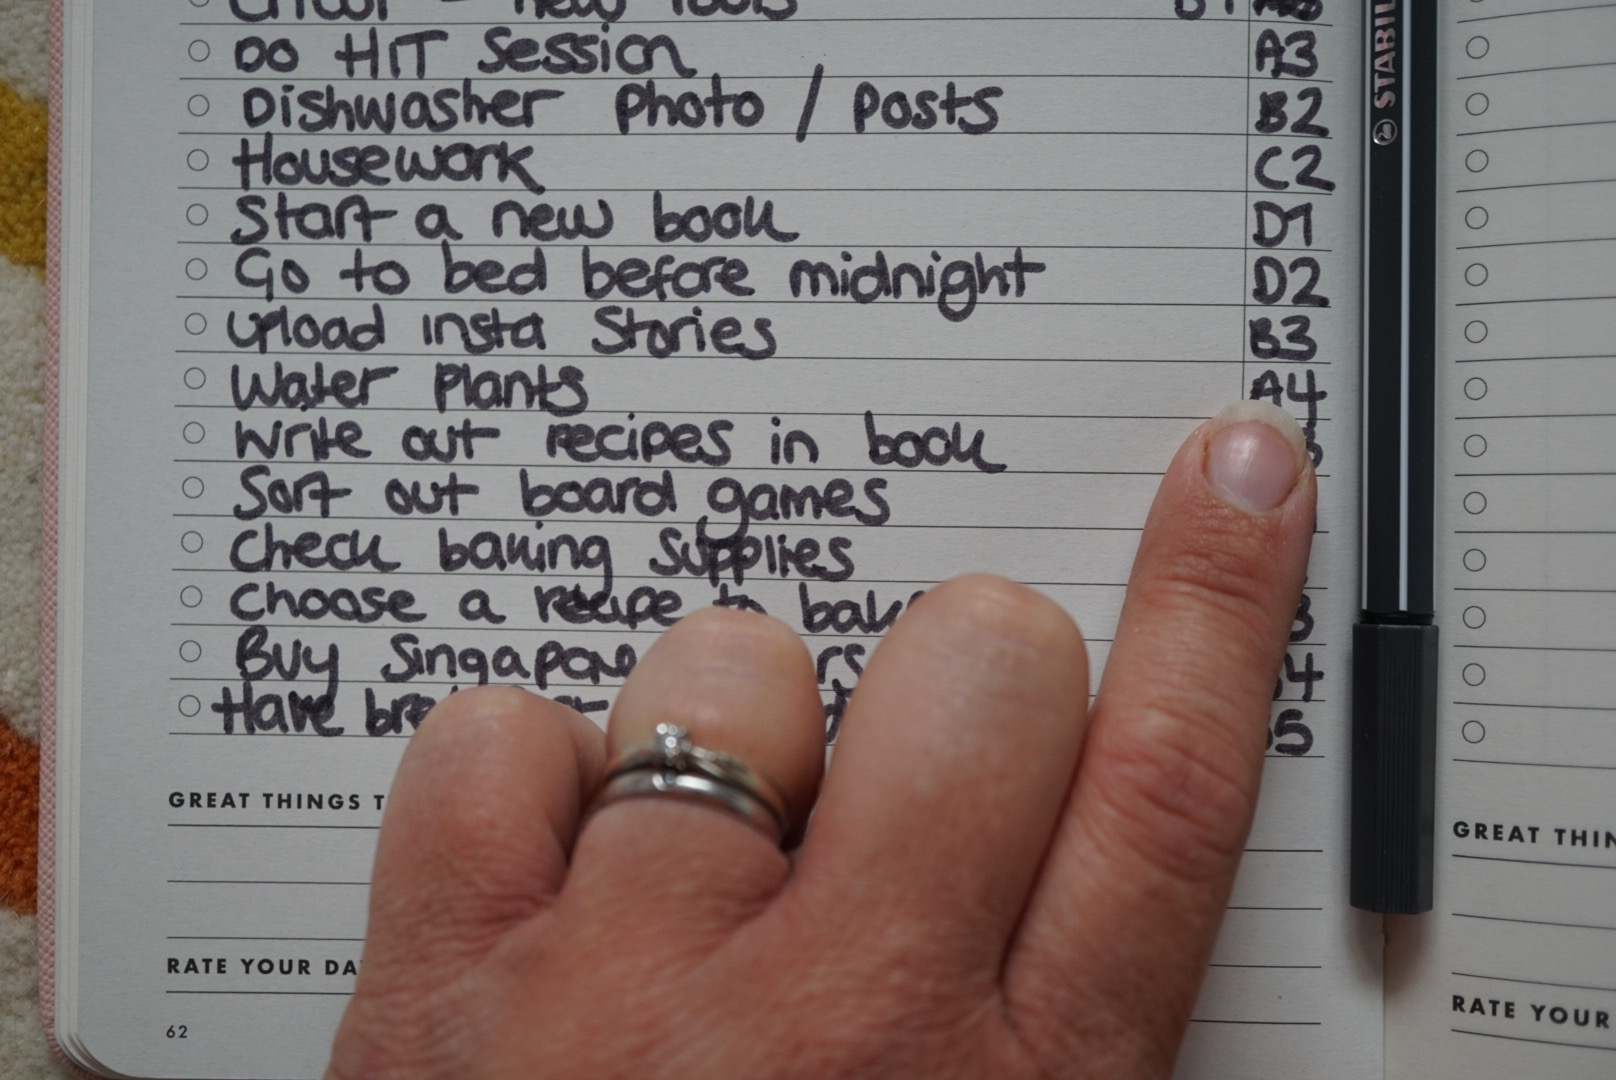 new Tools
DO HIT Session A3
Dishwasher Photo / Posts B2
Housework C2
Start a new book D1
Go to bed before midnight D2
Upload insta Stories B3
Water Plants A4
Write out recipes in book
Sort out board games
Check baking Supplies
Choose a recipe to 3
Buy 4
Have 5
GREAT THINGS
RATE YOUR
62
STABIL
GREAT
RATE YOUR